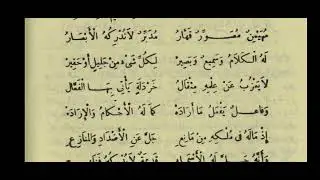 مُهَيْمِنٌ مُصَوِّرٌ قَهَّارُ مُدَبِّرٌ لَاتُدْرِكُهُ الْأَبْصَارُ
لَهُ الْكَلَامُ وَسَمِيعٌ وَبَصِيرْ لِكُلِّ شَىْءٍ مِنْ جَلِيلٍ أَوْحَقِيرْ
لَايَعْزُبُ عَنْ عِلْمِهِ مِثْقَالُ خَرْدَلَةٍ يَأْتِى بِهَا الْفَعَّالُ
وَفَاعِلٌ يَفْعَلُ مَا أَرَادَهْ كَمَا لَهُ الْأَحْكَامُ وَالْإِرَادَهْ
إِذْ مَالَهُ فِى مُلْكِهِ مِنْ مَانِعِ جَلَّ عَنِ الْأَضْدَادِ وَالْمُنَازِعِ